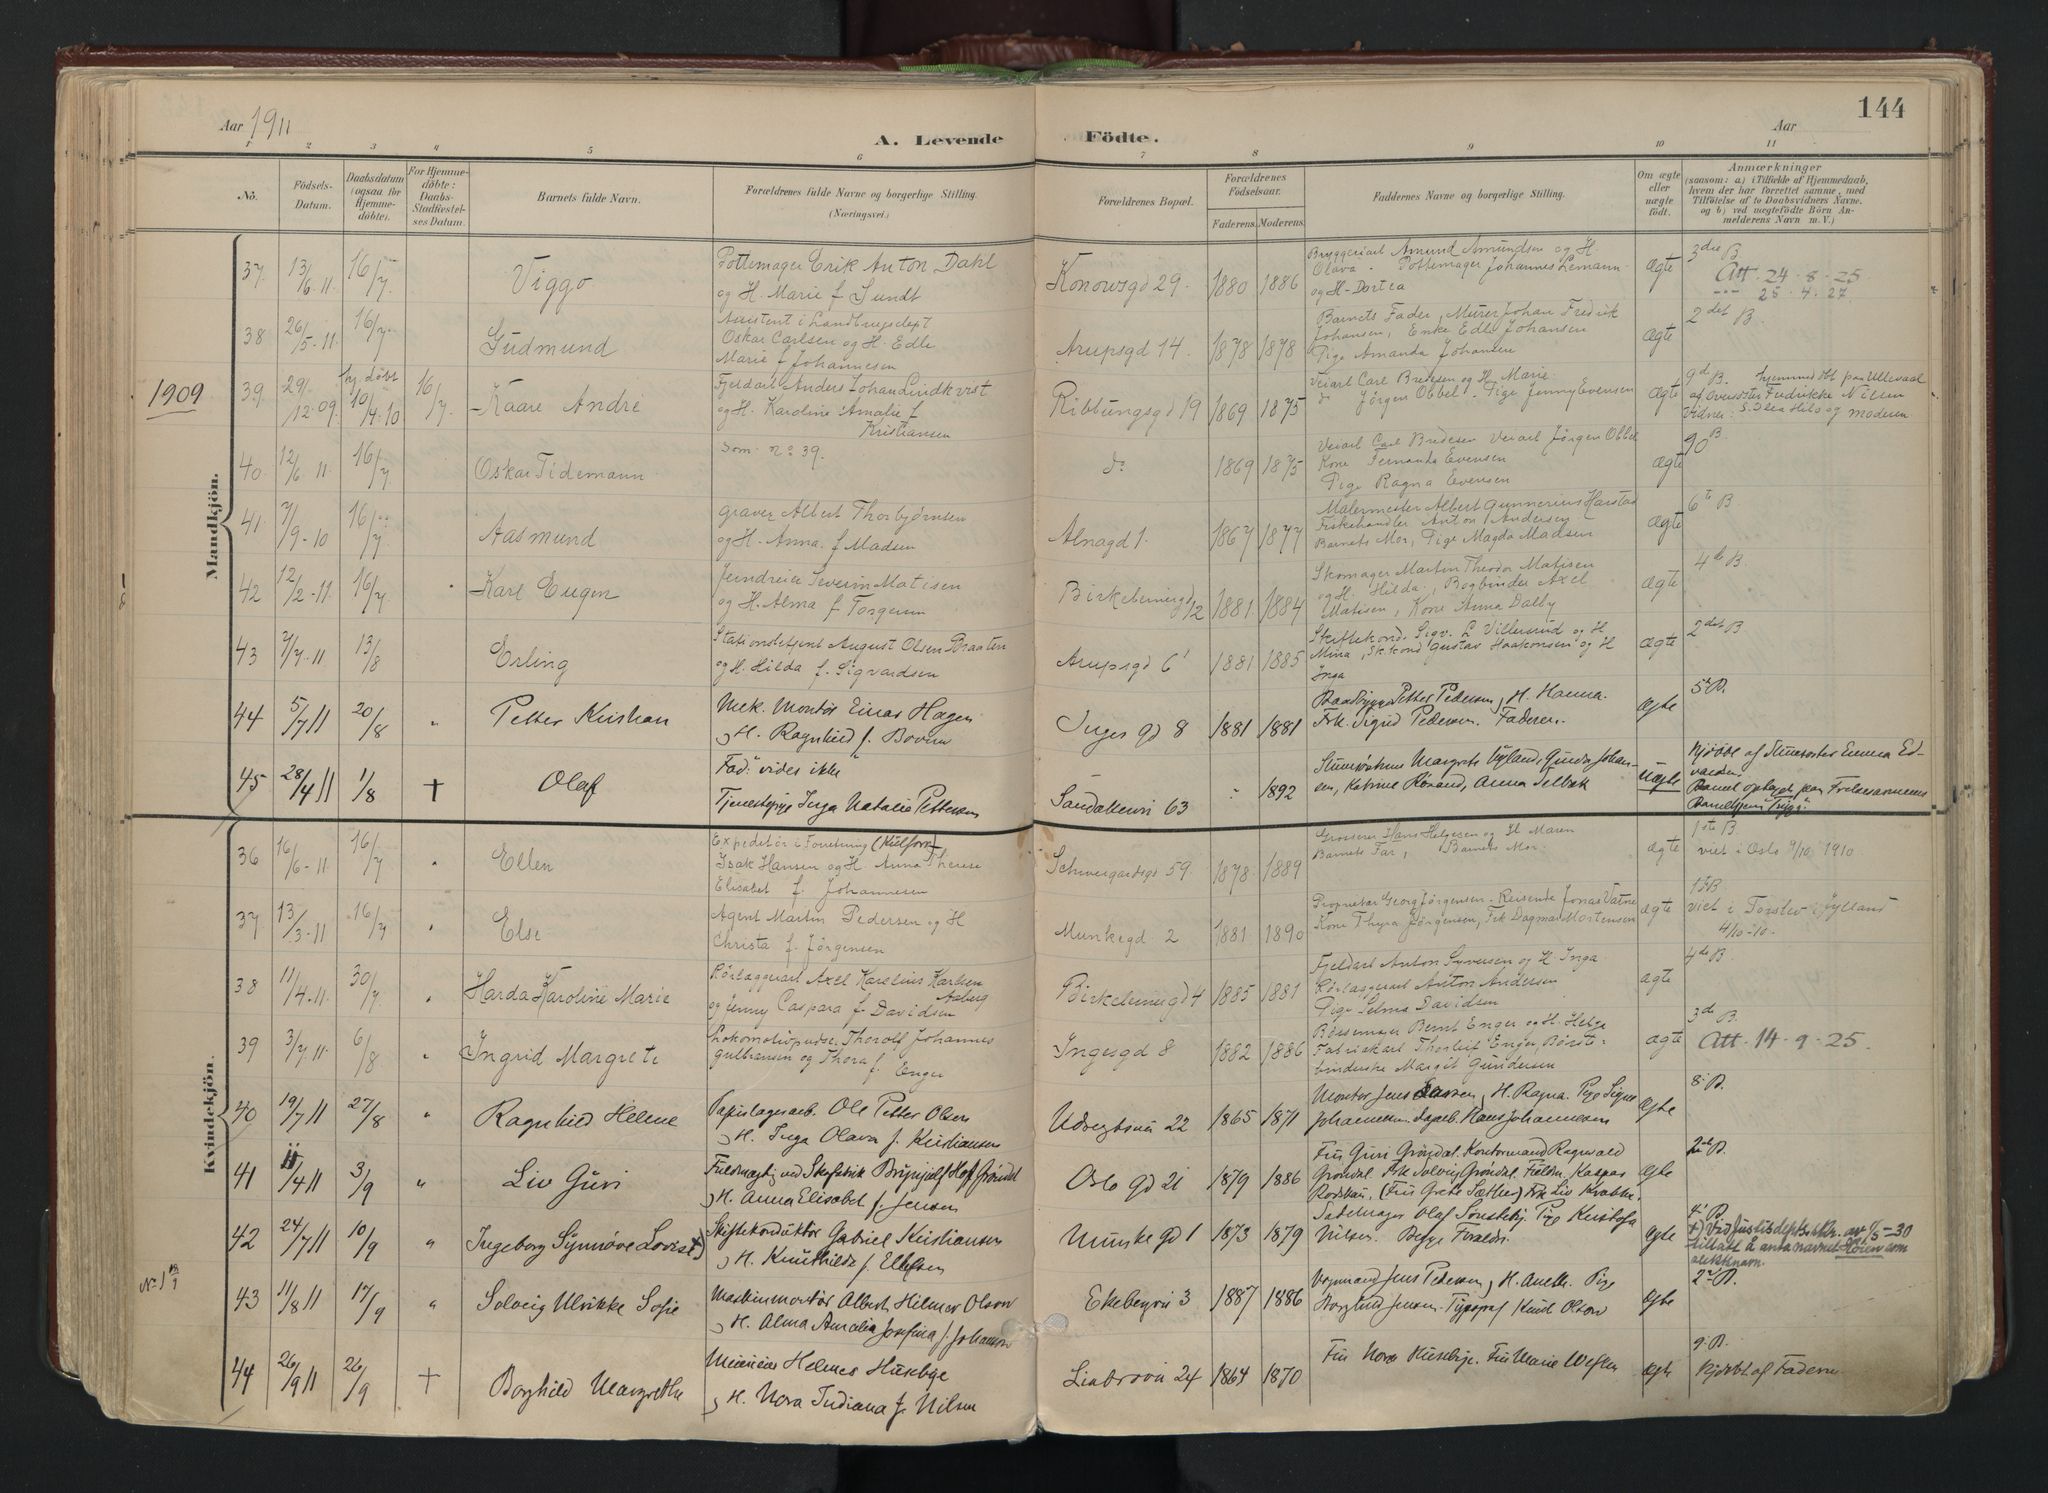 144
Aar 1911
A. Levende Födte.
Aar
1 2 3 4 5 6 7 8 9 10 11
No.
Födsels-
Datum.
Daabsdatum
(ogsaa for
Hjemme-
döbte).
For Hjemme-
döbte:
Daabs-
Stadfæstel-
ses Datum.
Barnets fulde Navn.
Forældrenes fulde Navne og borgerlige Stilling.
(Næringsvei.)
Forældrenes Bopæl.
Forældrenes
Födselsaar.
Faderens. Moderens.
Faddernes Navne og borgerlige Stilling.
Om ægte
eller
uægte
födt.
Anmærkninger
(saasom: a) i Tilfælde af Hjemmedaab,
hvem der har forrettet samme, med
Tilföielse af to Daabsvidners Navne.
og b) ved uægtefödte Börn An-
melderens Navn m. V.)
Mandkjön.
37 13/6-11 16/7 Viggo
Pottemager Erik Anton Dahl
og H. Marie f. Sundt
Konowsgd 29. 1880 1886
Bryggeriarb Amund Amundsen og H.
Olava. Pottemager Johannes Lemann
og H. Dortea
ægte
3die B
Att. 24-8-25
25-4-27
38 26/5-11 16/7 Gudmund
Assistent i Landbrugsdept
Oskar Carlsen og H. Edle
Marie f. Johannesen
Arupsgd 14. 1878 1878
Barnets Fader, Murer Johan Fredrik
Johansen, Enke Edle Johansen
Pige Amanda Johansen
ægte
2det B.
1909
39 29/12.09 hj. döbt 10/4.10 16/7 Kaare André
Fjeldarb Anders Johan Lindkvist
og H. Karoline Amalie f.
Kristiansen
Ribbungsgd 19 1869 1875
Veiarb Carl Bredesen og H. Marie
do Jörgen Obbel. Pige Jenny Evensen
ægte
9de B. hjemmedöbt paa Ullevaal
af Oversöster Fredrikke Nilsen
Vidner: og moderen
40 12/6 11 16/7 Oskar Tidemann
Som no 39.
do 1869 1875
Veiarb Carl Bredesen Veiarb Jörgen Obbel
Kone Fernanda Evensen
Pige Ragna Evensen
ægte
10 B.
41 7/9-10 16/7 Aasmund
Graver Albert Thorbjörnsen
og H. Anna f. Madsen
Alnagd 1. 1867 1877
Malermester Albert Gunnerius Harstad
Fiskehandler Anton Andersen
Barnets Mor, Pige Magda Madsen
ægte
6te B
42 12/2-11 16/7 Karl Eugen
Jerndreier Severin Matisen
og H. Alma f. Torgersen
Birkebeinergd 12 1881 1884
Skomager Martin Theodor Matisen
og H. Hilda, Bogbinder Axel
Matisen, Kone Anna Dalby
ægte
4de B.
43 2/7-11 13/8 Erling
Stationsbetjent August Olsen Braaten
og H. Hilda f. Sigvardsen
Arupsgd 6 1881 1885
Skiftekond. Sigv. L. Villersrud og H
Mina, Sk.kond Gustav Haakonsen og H
Inga
ægte
2det B
44 5/7 11 20/8 " Petter Kristian
Mek. Montör Einar Hagen
og H. Ragnhild f. Bovim
Inges gd 8 1881 1881
Baadbygger Petter Pedersen, H. Hanna.
Frk. Sigrid Pedersen. Faderen.
ægte
5te B.
45 28/4 11 1/8 + Olaf
Fad: "vides ikke"
Tjenestepige Inga Natalie Pettersen
Sandakervei 63 - 1892
Margrete Nyland, Gunda Johan-
sen, Katrine Rörand, Anna Selbæk
Uægte
hjdöbt af Emma Ed-
vardsen
Barnet optaget paa Frelsesarmeens
Barnehjem
Kvindekjön.
36 16/6-11 16/7 " Ellen
Expeditör i Forretning
Isak Hansen og H. Anna Therese
Elisabet f. Johannesen
Schweigaardsgd 59. 1878 1889
Grosserer Hans Helgesen og H Maren
Barnets Far, Barnets Mor.
ægte
1ste B.
viet i Oslo 9/10 1910
37 13/3-11 16/7 " Else
Agent Martin Pedersen og H
Christa f. Jörgensen
Munkegd 2 1881 1890
Proprietær Georg Jörgensen. Reisende Jonas Vatne
Kone Thyra Jörgensen, Frk Dagmar Mortensen
ægte
1 B
viet i Torslev Jylland
4/10-10.
38 11/4-11 30/7 " Harda Karoline Marie
Rörlæggerarb Axel Karelius Karlsen
Aaberg
og Jenny Caspara f. Davidsen
Birkebeinergd 4 1885 1881
Fjeldarb Anton Syversen og H. Inga
Rörlæggerarb Anton Andersen
Pige Selma Davidsen
ægte
4de B.
39 3/7 11 6/8 " Ingrid Margrete
Lokomotivpudser Thorolf Johannes
Gulbransen og Thora f. Enger
Ingesgd 8 1882 1886
Börsemager Bernt Enger og H. Helga
Fabrikarb Thorleif Enger, Börste-
binderske Margit Gundersen
ægte
3de B.
Att. 14-9-25
40 19/7 11 27/8 " Ragnhild Helene
Papirlagerarb. Ole Petter Olsen
og H. Inga Olava f. Kristiansen
Udsigtsvei 22 1865 1871
Montör Jens Larsen, H. Ragna. Pige Signe
Johannesen. Lagerb. Hans Johannesen
ægte
8. B.
41 11/4 11 3/9 " Liv Guri
Fuldmægtig ved Skofabrik Brynjulf Hoff Gröndal
og H. Anna Elisabet f. Jensen
Oslo gd 21 1879 1886
Fru Guri Gröndal. Kontormand Ragnvald
Gröndal. Frk Solveig Gröndal. Fuldm. Kaspar
Rodskau, (Fru Grete Sæther) Frk Liv Krabbe.
ægte
2den B.
42 24/7 11 10/9 " Ingeborg Synnöve Lovise +)
Skiftekonduktör Gabriel Kristiansen
og H. Knuthilde f. Ellefsen
Munke gd 1 1873 1879
Sadelmager Olaf Pige Kristofa
Nilsen. Begge Foræld.
ægte
4 B.
+) Ved Justisdepts skr. av 1/5-30
tillatt å anta navnet Höien som
slektsnavn.
No 1
43 11/8 11 17/9 " Solveig Ulrikke Sofie
Maskinmontör Albert Hilmar Olson
og H. Alma Amalia Josefina f. Johanson
Ekebergvei 3 1887 1886
Vognmand Jens Pedersen, H. Anette. Pige
Borghild Jensen. Typograf Knut Olsen
ægte
2n B.
44 26/9 11 26/9 + Borghild Margrethe
Meieribest Helmer Husebye
og H. Nora Indiana f. Nilsen
Liabrovei 24 1864 1870
Fru Nora Husebye. Fru Marie
ægte
9. B.
hjdöbt af Faderen